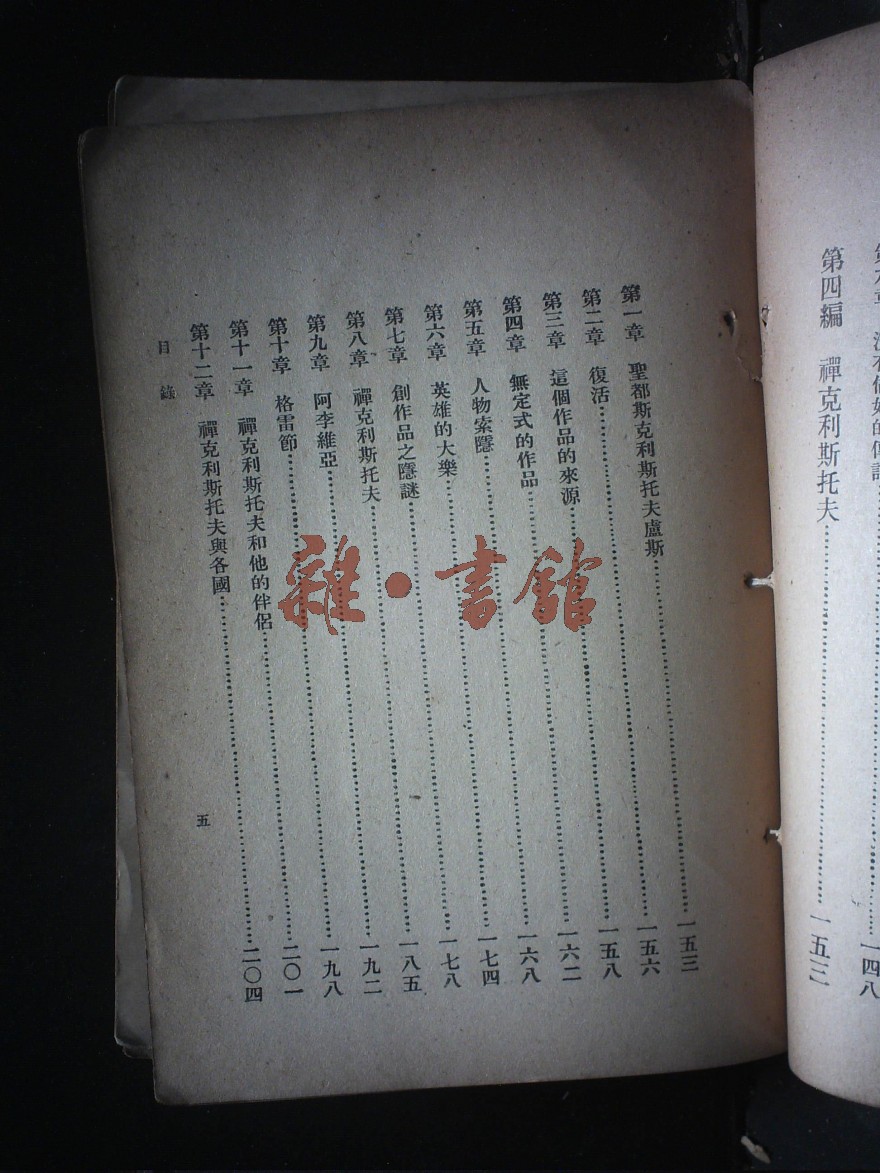 一四八
第四編 禪克利斯托夫……一五三
第一章 聖都斯克利斯托夫盧斯……一五三
第二章 復活……一五六
第三章 這個作品的來源……一五八
第四章 無定式的作品……一六二
第五章 人物索隱……一六八
第六章 英雄的大樂……一七四
第七章 創作品之隱謎……一七八
第八章 禪克利斯托夫……一八五
第九章 阿李維亞……一九二
第十章 格雷節……一九八
第十一章 禪克利斯托夫和他的伴侶……二〇一
第十二章 禪克利斯托夫與各國……二〇四
目錄 五
雜·書館